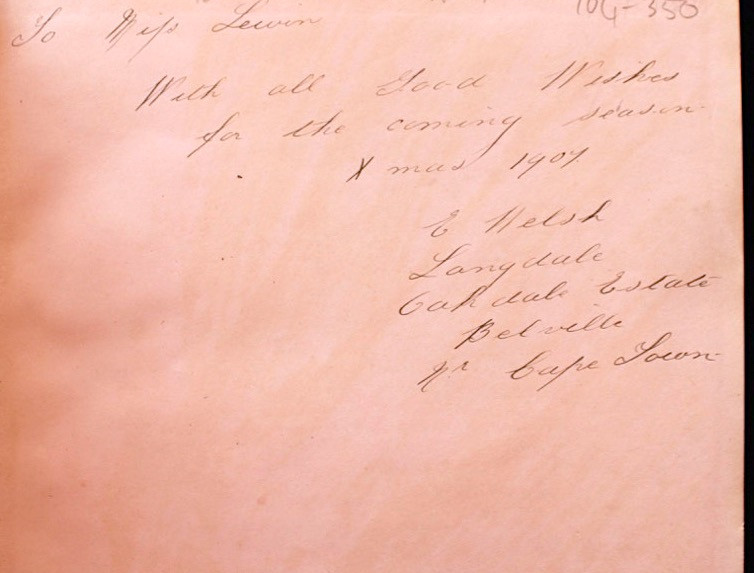 104-350
To Miss Lewin
With all Good Wishes
for the coming season
Xmas 1907
E Welsh
Langdale
Oakdale Estate
Belville
Nr Cape Town